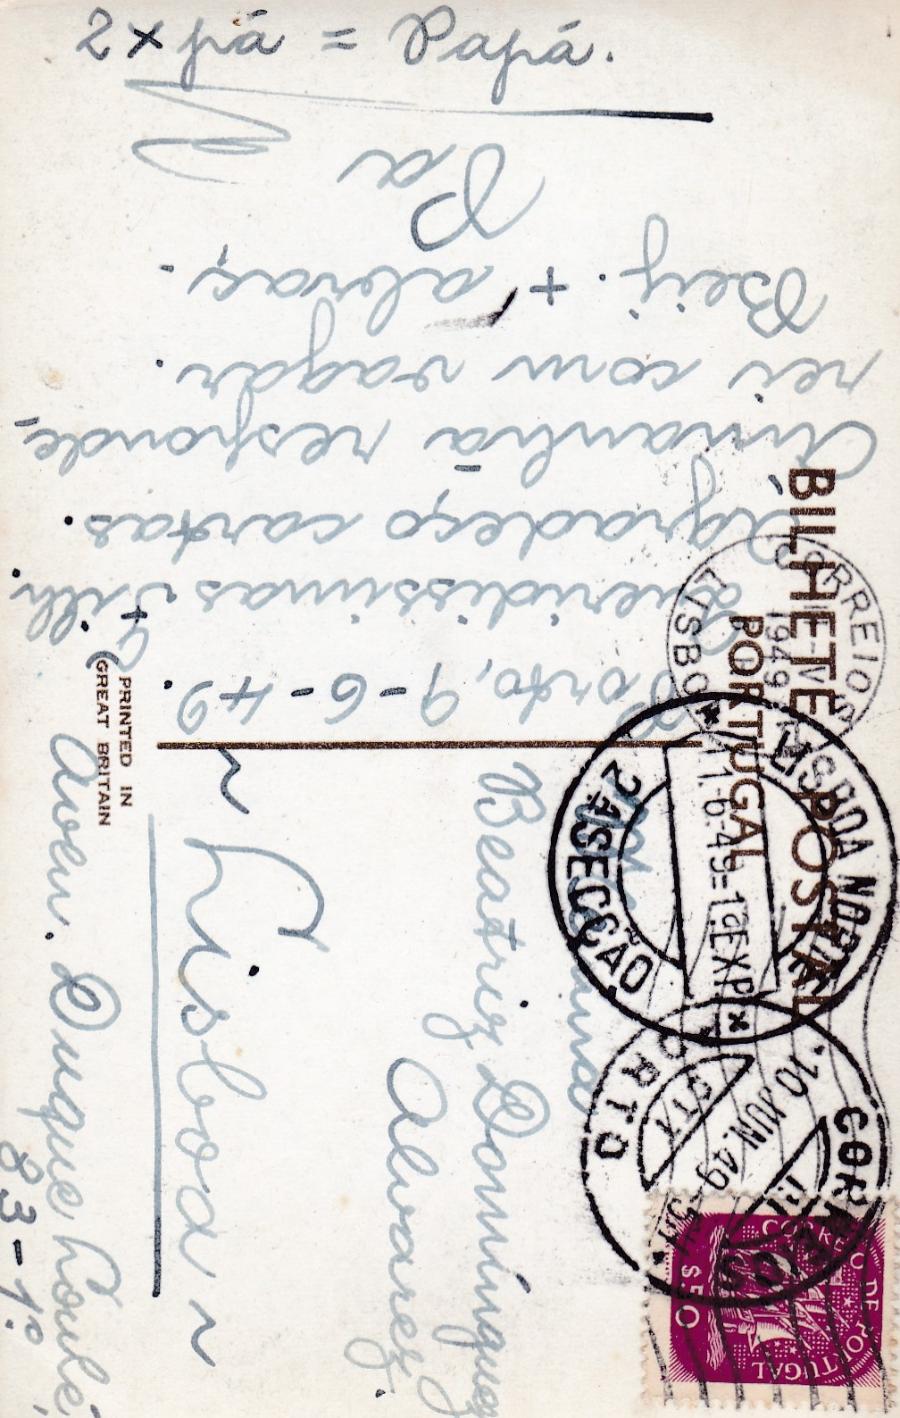 2 x pá = Papá.
Porto, 9-6-49.
Queridissimas Filh
Agradeço cartas.
Amanhã responde-
rei com vagár.
Beij. + abraç.
Pa
BILHETE POSTAL
PORTUGAL
PRINTED IN
GREAT BRITAIN
Beatriz Domínguez
Alvarez.
~ Lisboa ~
Aven. Duque Loulé,
83-1º
CORREIO
LISBOA
1949
LISBOA NORTE
2ª SECÇÃO
11-6-49=1ªEXP
CORREIOS
10 JUN.49
PORTO
CORREIO DE PORTUGAL
$50